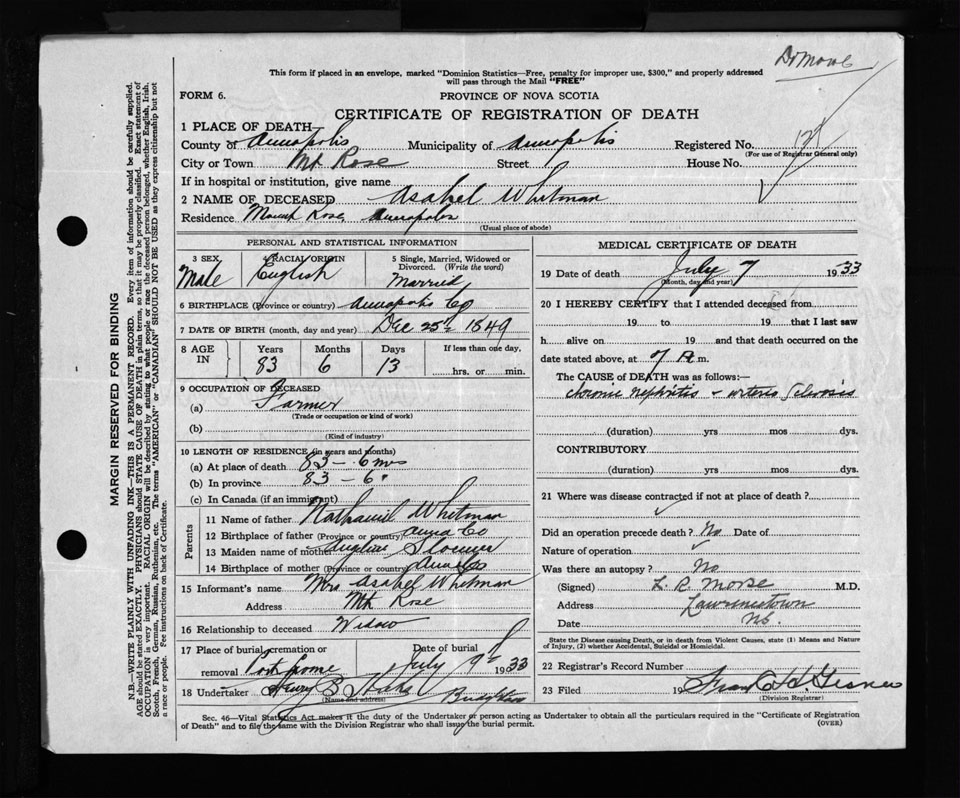 Dr Morse
This form if placed in an envelope, marked "Dominion Statistics—Free, penalty for improper use, $300," and properly addressed
will pass through the Mail "FREE"
FORM 6.
PROVINCE OF NOVA SCOTIA
CERTIFICATE OF REGISTRATION OF DEATH
1 PLACE OF DEATH—
County of Annapolis Municipality of Annapolis Registered No.
(For use of Registrar General only)
City or Town Mt. Rose Street House No.
If in hospital or institution, give name
2 NAME OF DECEASED Asahel Whitman
Residence Mount Rose, Annapolis
(Usual place of abode)
PERSONAL AND STATISTICAL INFORMATION
3 SEX 4 RACIAL ORIGIN 5 Single, Married, Widowed or
Divorced. (Write the word)
Male English Married
6 BIRTHPLACE (Province or country) Annapolis Co
7 DATE OF BIRTH (month, day and year) Dec 25th 1849
8 AGE IN Years Months Days If less than one day,
83 6 13 hrs. or min.
9 OCCUPATION OF DECEASED
(a) Farmer
(Trade or occupation or kind of work)
(b)
(Kind of industry)
10 LENGTH OF RESIDENCE (in years and months)
(a) At place of death 83 – 6 mos
(b) In province 83 – 6 "
(c) In Canada (if an immigrant)
Parents
11 Name of father Nathaniel Whitman
12 Birthplace of father (Province or country) Anna Co
13 Maiden name of mother Angeline Slocum
14 Birthplace of mother (Province or country)
15 Informant's name Mrs Asahel Whitman
Address Mt. Rose
16 Relationship to deceased Widow
17 Place of burial, cremation or Date of burial
removal Port Lorne July 9th 1933
18 Undertaker
(Name and address)
MEDICAL CERTIFICATE OF DEATH
19 Date of death July 7 1933
(Month, day and year)
20 I HEREBY CERTIFY that I attended deceased from
19 to 19 that I last saw
h alive on 19 and that death occurred on the
date stated above, at 7 A.m.
The CAUSE of DEATH was as follows:—
chronic nephritis + arterio sclerosis
(duration) yrs mos dys.
CONTRIBUTORY
(duration) yrs mos dys.
21 Where was disease contracted if not at place of death?
Did an operation precede death? No Date of
Nature of operation
Was there an autopsy? No
(Signed) L. R. Morse M.D.
Address Lawrencetown
Date N.S.
State the Disease causing Death, or in death from Violent Causes, state (1) Means and Nature
of Injury, (2) whether Accidental, Suicidal or Homicidal.
22 Registrar's Record Number
23 Filed 19
(Division Registrar)
Sec. 46—Vital Statistics Act makes it the duty of the Undertaker or person acting as Undertaker to obtain all the particulars required in the "Certificate of Registration
of Death" and to file the same with the Division Registrar who shall issue the burial permit. (OVER)
MARGIN RESERVED FOR BINDING
N.B.—WRITE PLAINLY WITH UNFADING INK—THIS IS A PERMANENT RECORD. Every item of information should be carefully supplied.
AGE should be stated EXACTLY. PHYSICIANS should STATE CAUSE OF DEATH in plain terms, so that it may be properly classified. Exact statement of
OCCUPATION is very important. RACIAL ORIGIN will be described by stating to what people or race the deceased person belonged, whether English, Irish,
Scotch, French, German, Russian, Ruthenian, etc. The terms "AMERICAN" or "CANADIAN" SHOULD NOT BE USED as they express citizenship but not
a race or people. Fee instructions on back of Certificate.